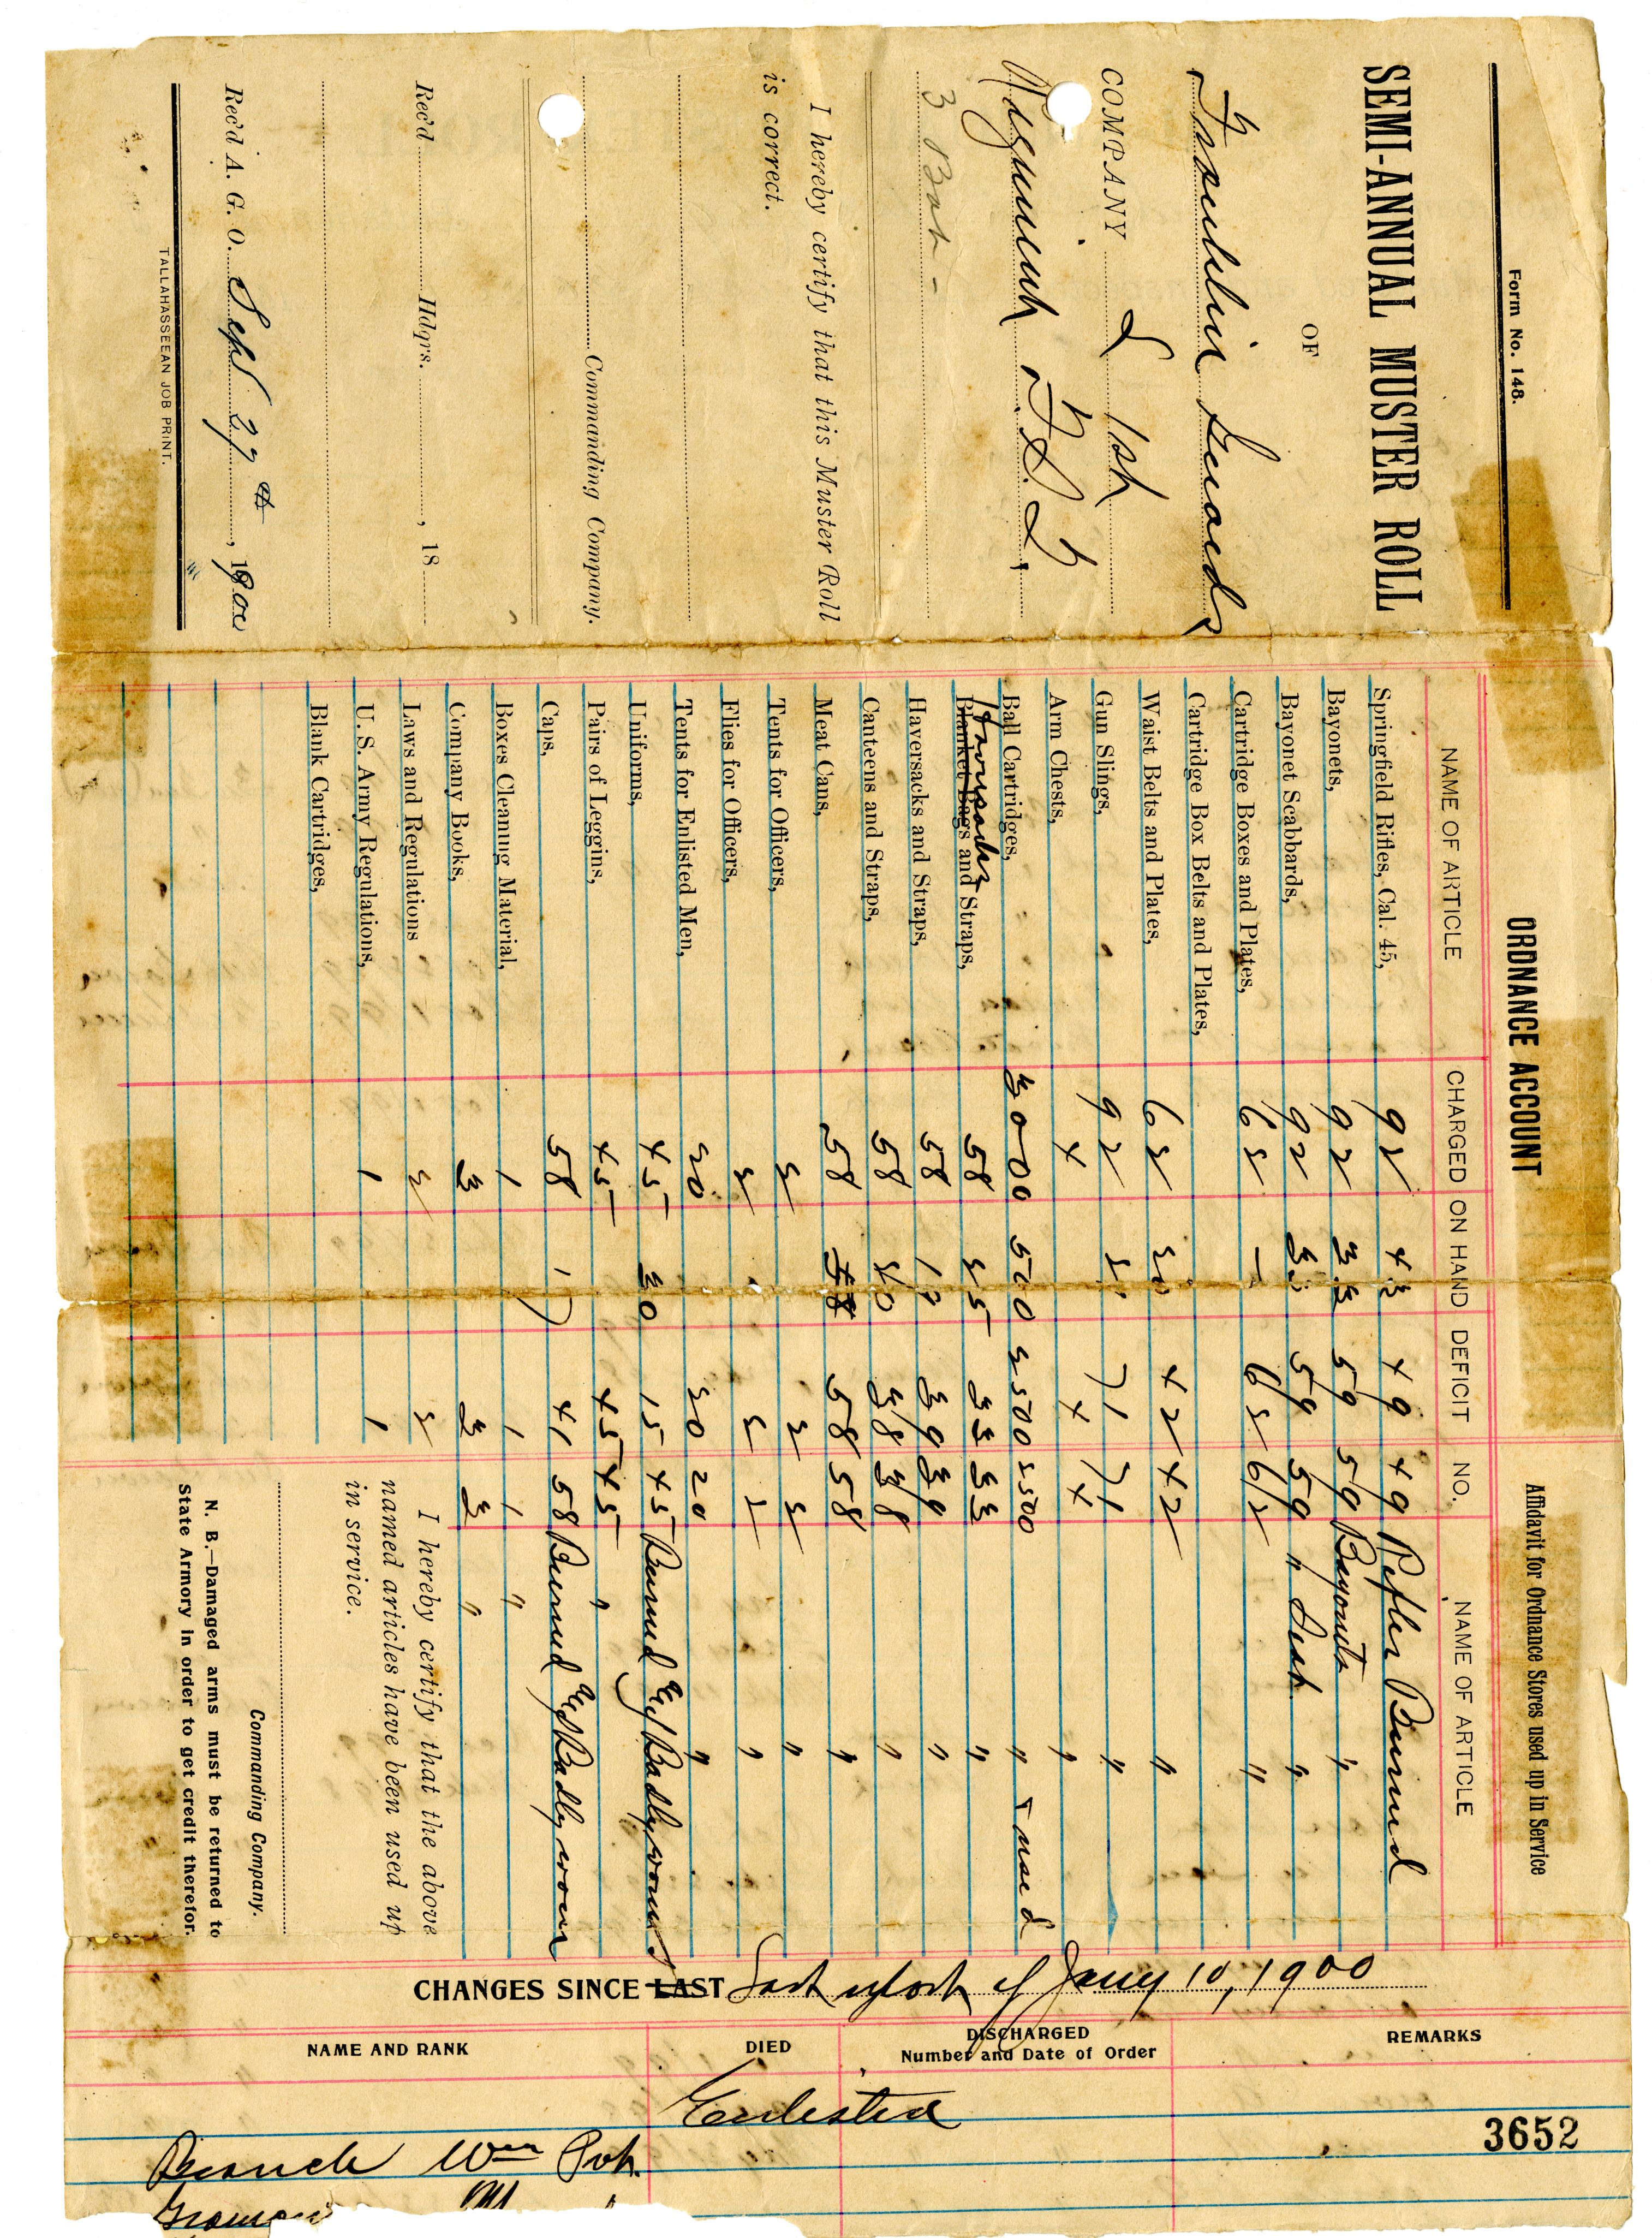 Form No. 148.
SEMI-ANNUAL MUSTER ROLL
OF
Franklin Guards
COMPANY I 1st
Regiment F.S.T.
3 Bat-
I hereby certify that this Muster Roll
is correct.
Commanding Company.
Rec'd Hdqrs. , 18
Rec'd A. G. O. Sept 27th, 1900
TALLAHASSEEAN JOB PRINT.
ORDNANCE ACCOUNT
Affidavit for Ordnance Stores used up in Service
NAME OF ARTICLE CHARGED ON HAND DEFICIT NO. NAME OF ARTICLE
Springfield Rifles, Cal. 45, 92 43 49 49 Rifles Burned
Bayonets, 92 33 59 59 Bayonets "
Bayonet Scabbards, 92 33 59 59 " Scab. "
Cartridge Boxes and Plates, 62 — 62 62 "
Cartridge Box Belts and Plates,
Waist Belts and Plates, 62 20 42 42 "
Gun Slings, 92 21 71 71 "
Arm Chests, 4 4 4 "
Ball Cartridges, 3000 500 2500 2500 " & used
Haversacks
Blanket Bags and Straps, 58 25 33 33 "
Haversacks and Straps, 58 19 39 39 "
Canteens and Straps, 58 20 38 38 "
Meat Cans, 58 58 58 58 "
Tents for Officers, 2 2 2 "
Flies for Officers, 2 2 2 "
Tents for Enlisted Men, 20 20 20 "
Uniforms, 45 30 15 45 Burned & Badly worn
Pairs of Leggins, 45 45 45 "
Caps, 58 17 41 58 Burned & Badly worn
Boxes Cleaning Material, 1 1 1 "
Company Books, 3 3 3 "
Laws and Regulations 2 2
U. S. Army Regulations, 1 1
Blank Cartridges,
I hereby certify that the above
named articles have been used up
in service.
Commanding Company.
N. B.—Damaged arms must be returned to
State Armory in order to get credit therefor.
CHANGES SINCE LAST Last report of Jany 10, 1900
NAME AND RANK DIED DISCHARGED Number and Date of Order REMARKS
Enlisted
3652
Wm Pvt.